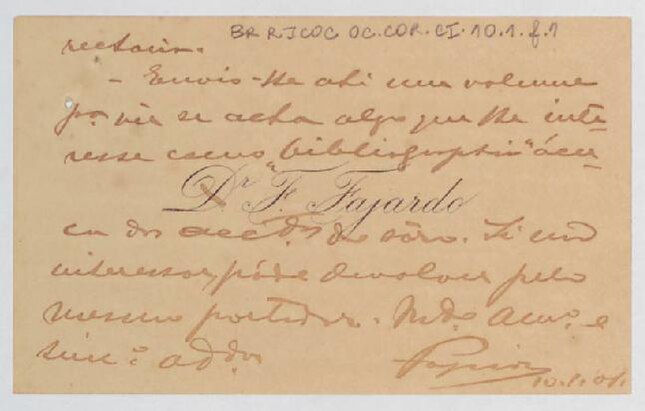 BR RJCOC OC.COR.CI.10.1.f.1
rectoria.
- Envio-lhe ahi um volume
pa. ver se acha algo que lhe inte-
resse como "bibliographia" áCer-
Dr. F. Fajardo
ca dos accds do sôro. Si não
interessar, póde devolver pelo
mesmo portador. Mdo amo. e
admdor
Fajardo